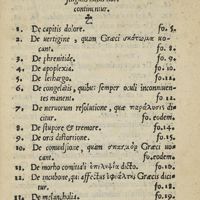 continentur.
1. De capitis dolore. fo. 5.
2. De vertigine, quam Græci σκότωμα uo-
cant. fo. 8.
3. De phrenitide. fo. 9.
4. De apoplexia. fo. 10.
5. De lethargo. fo. 11.
6. De congelatis, quibus semper oculi inconniuen-
tes manent. fo. 12.
7. De neruorum resolutione, quæ παράλυσις di-
citur. fo. eodem.
8. De stupore & tremore. fo. 14.
9. De oris distortione. fo. 15.
10. De conuulsione, quam σπασμὸν Græci uo-
cant. fo. eodem.
11. De morbo comitiali ἐπιληψία dicto. fo. 16.
12. De incubone, qui affectus ἐφιάλτης Græcis dici-
tur. fo. 18.
13. De melancholia. fo. 19.